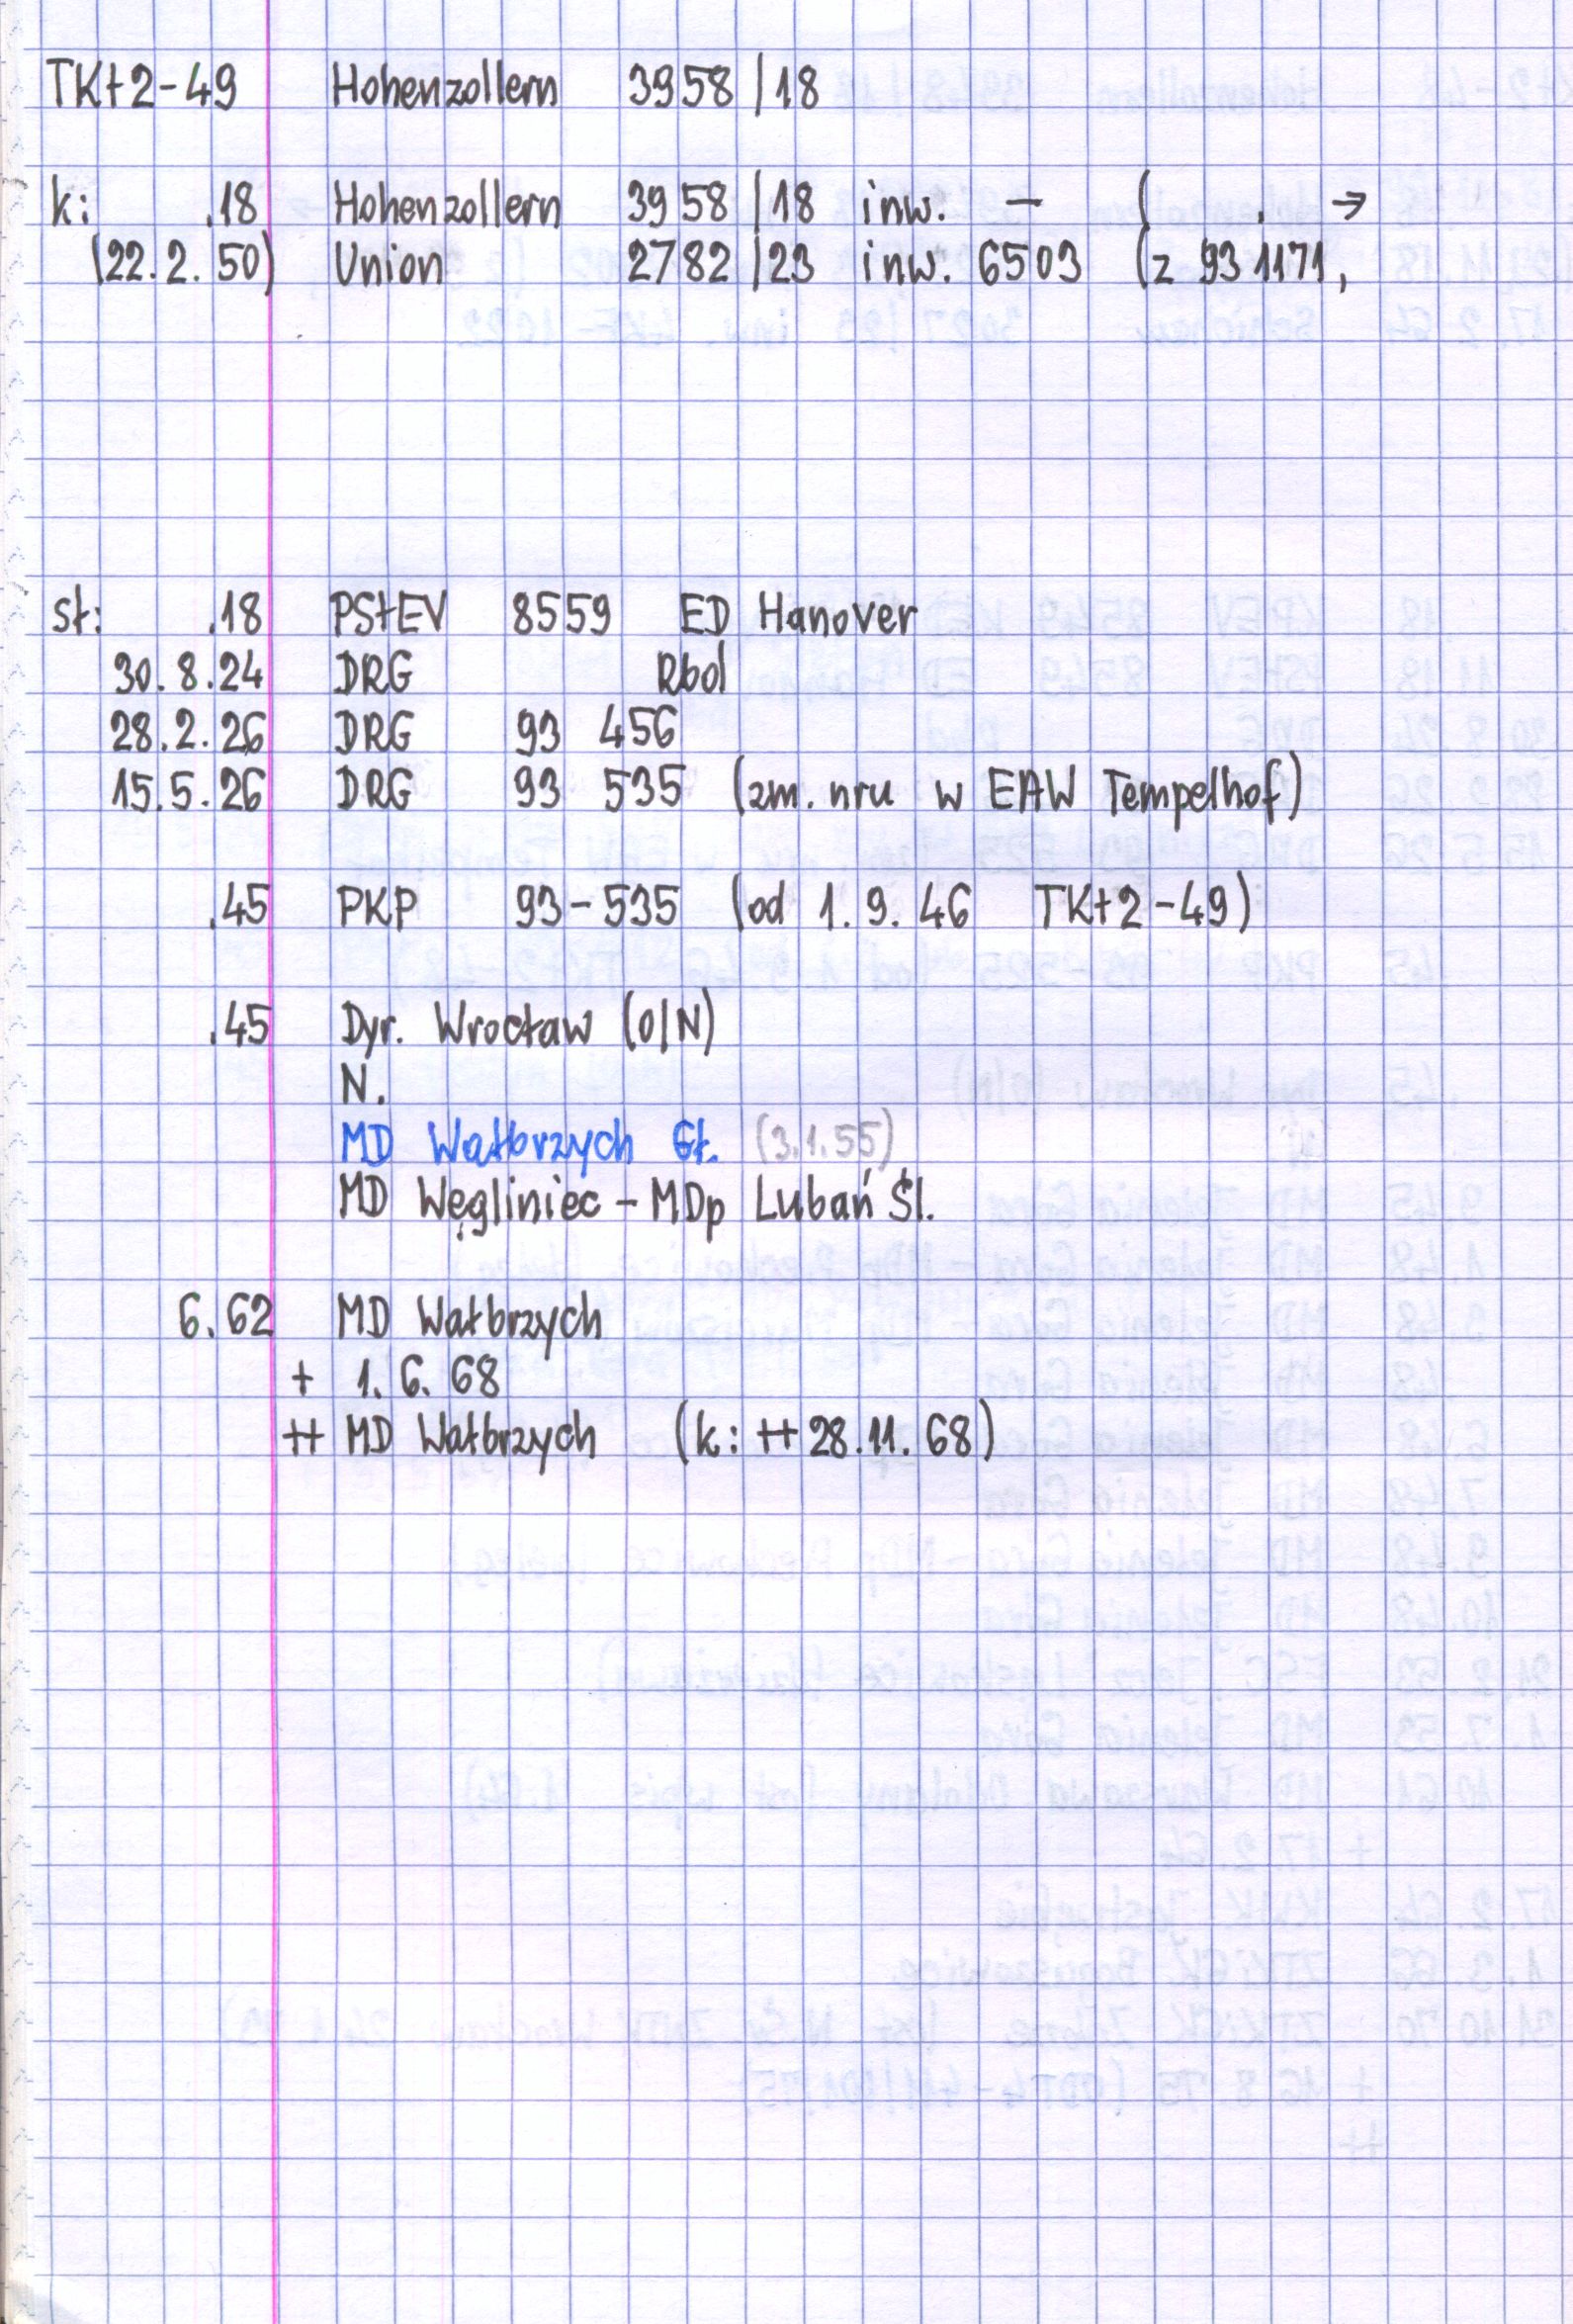 TKt2-49 Hohenzollern 3958/18
k: .18 Hohenzollern 3958/18 inw. – ( . →
(22.2.50) Union 2782/23 inw. 6503 (z 93 1171,
st: .18 PStEV 8559 ED Hanover
30.8.24 DRG Rbd
28.2.26 DRG 93 456
15.5.26 DRG 93 535 (zm. nru w EAW Tempelhof)
.45 PKP 93-535 (od 1.9.46 TKt2-49)
.45 Dyr. Wrocław (O/N)
N.
MD Wałbrzych Gł. (3.1.55)
MD Węgliniec – MDp Lubań Śl.
6.62 MD Wałbrzych
+ 1.6.68
++ MD Wałbrzych (k: ++ 28.11.68)